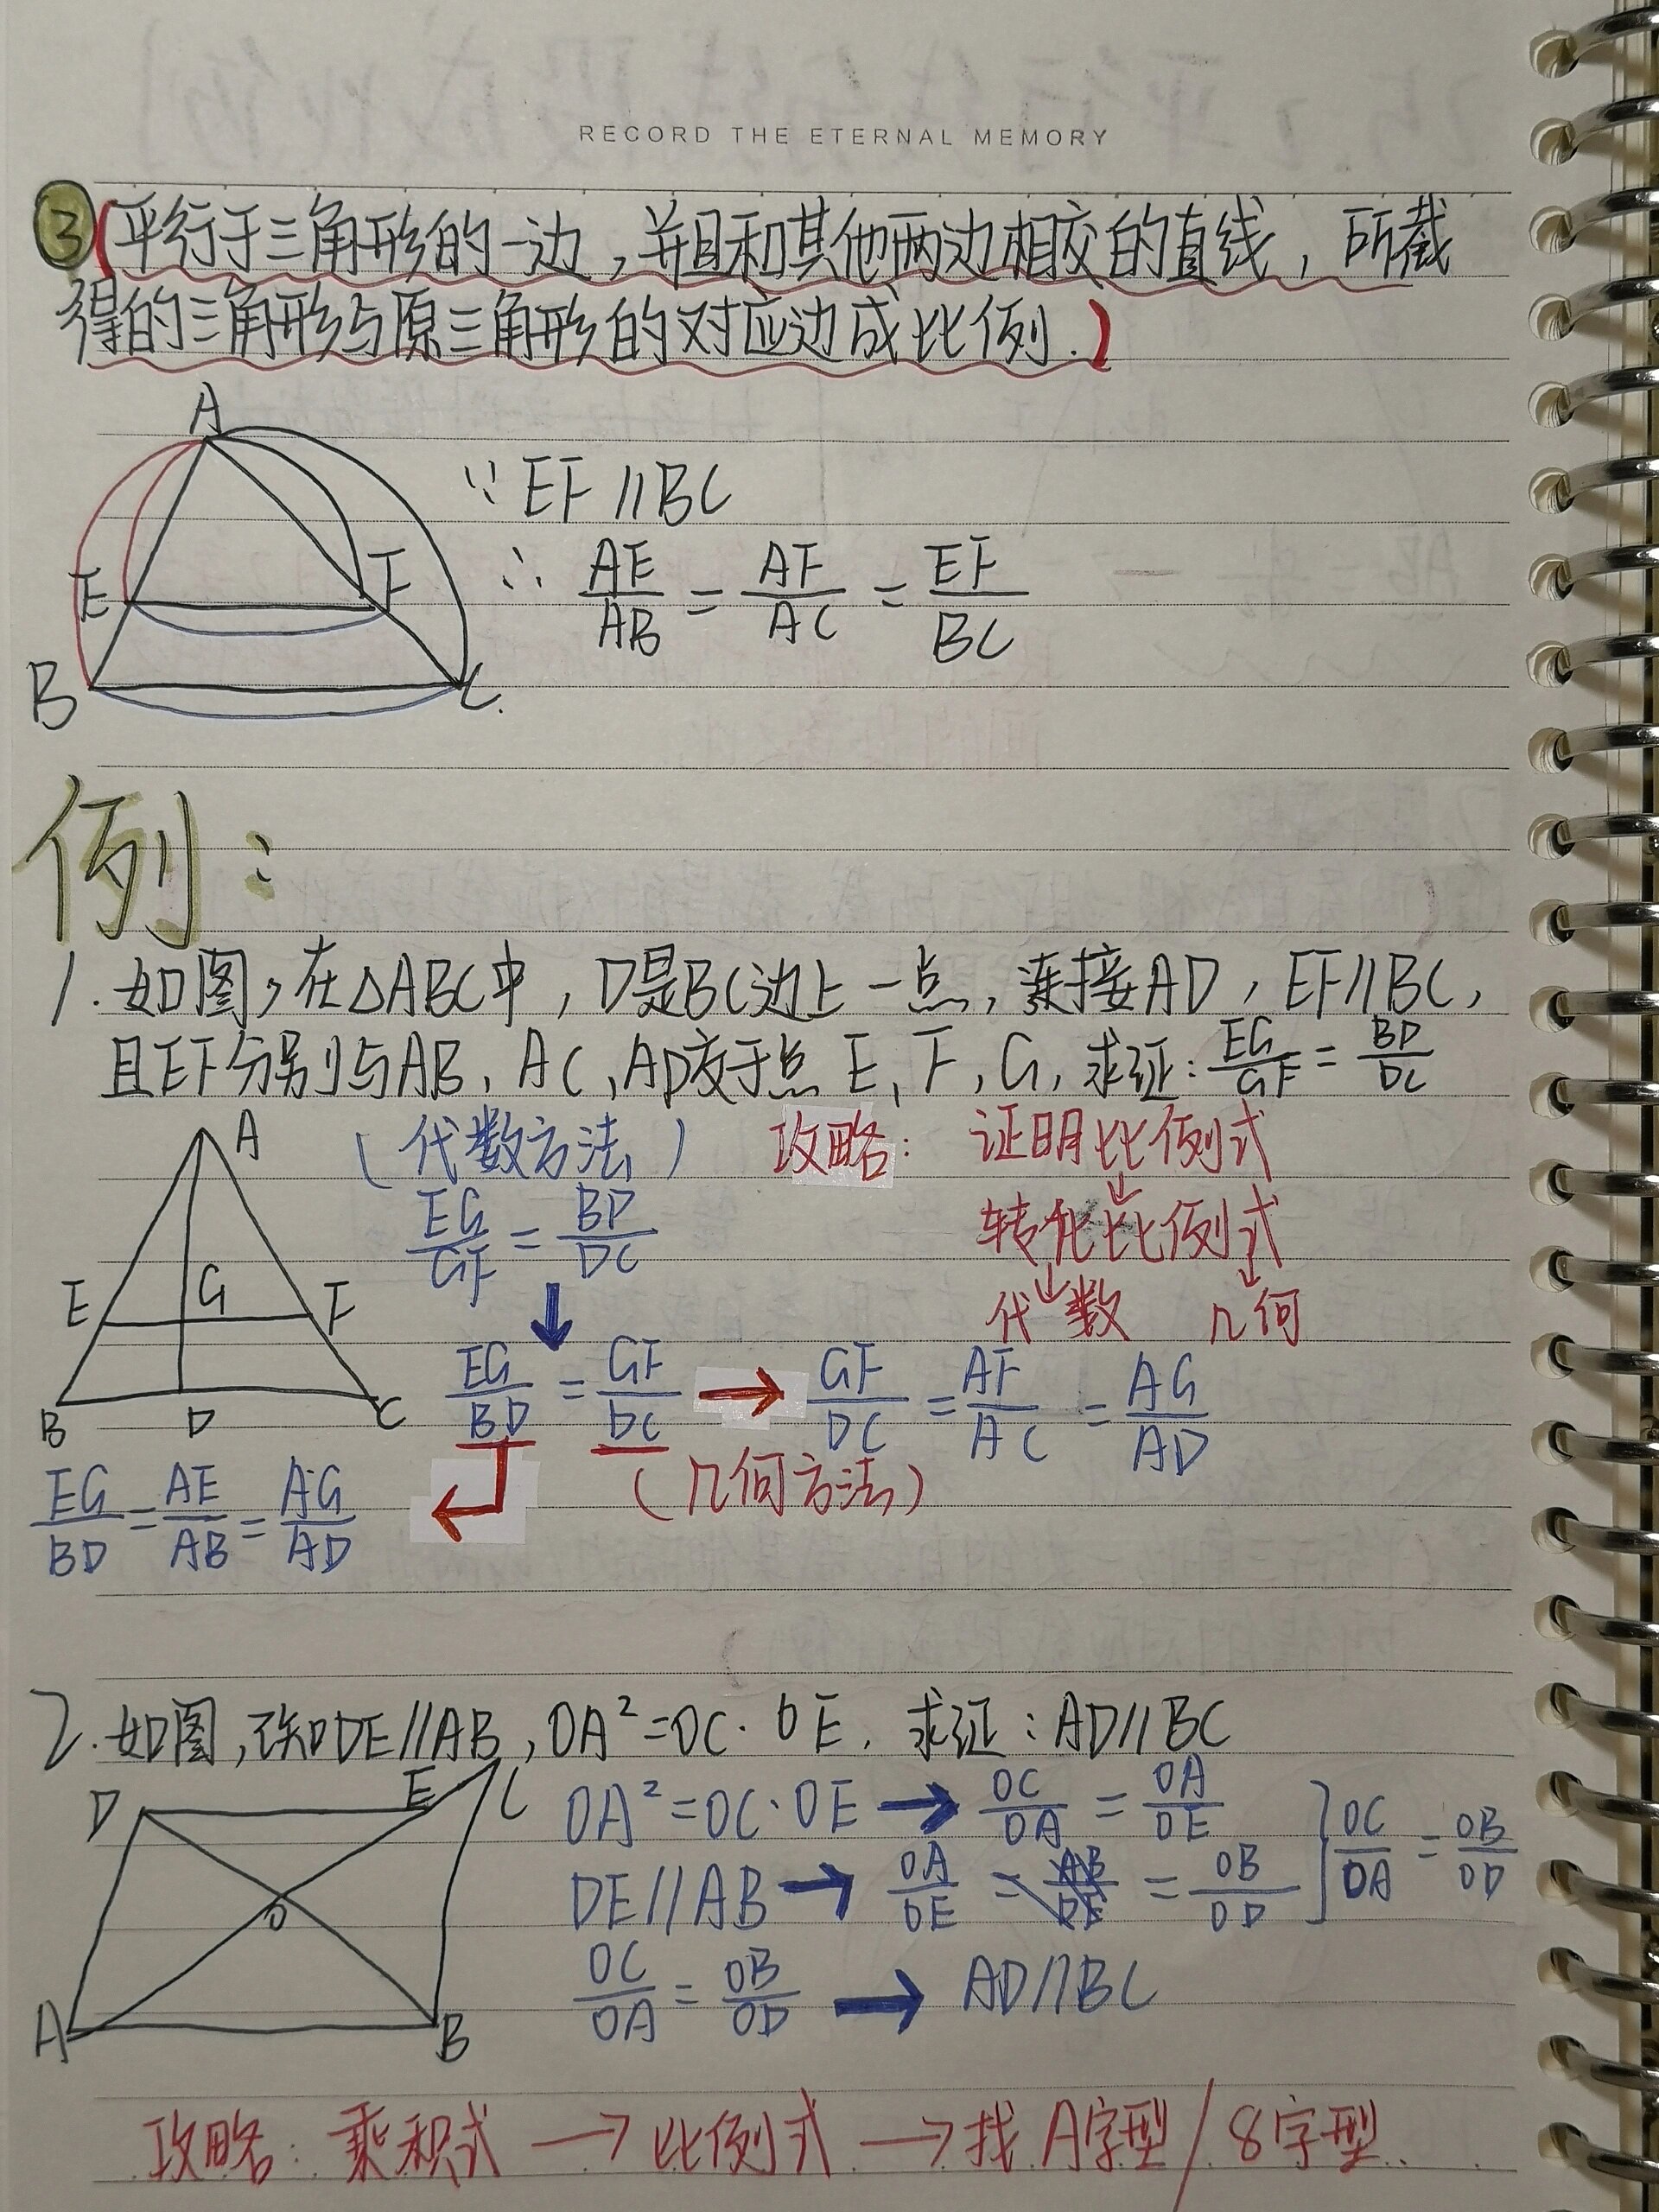 RECORD THE ETERNAL MEMORY
③(平行于三角形的一边,并且和其他两边相交的直线,所截
得的三角形与原三角形的对应边成比例.)
A
E F
B C
∵ EF∥BC
∴ AE/AB = AF/AC = EF/BC
例:
1. 如图,在△ABC中,D是BC边上一点,连接AD,EF∥BC,
且EF分别与AB,AC,AD交于点E,F,G,求证:EG/GF = BD/DC
A
E G F
B D C
(代数方法) 攻略: 证明比例式
EG/GF = BD/DC ↓
转化比例式
↓ ↓ ↓
代数 几何
EG/BD = GF/DC → GF/DC = AF/AC = AG/AD
(几何方法)
EG/BD = AE/AB = AG/AD ←
2. 如图,已知DE∥AB,OA²=OC·OE.求证:AD∥BC
D E C
O
A B
OA²=OC·OE → OC/OA = OA/DE
DE∥AB → OA/OE = = OB/OD } OC/OA = OB/OD
OC/OA = OB/OD → AD∥BC
攻略:乘积式 → 比例式 → 找A字型/8字型.